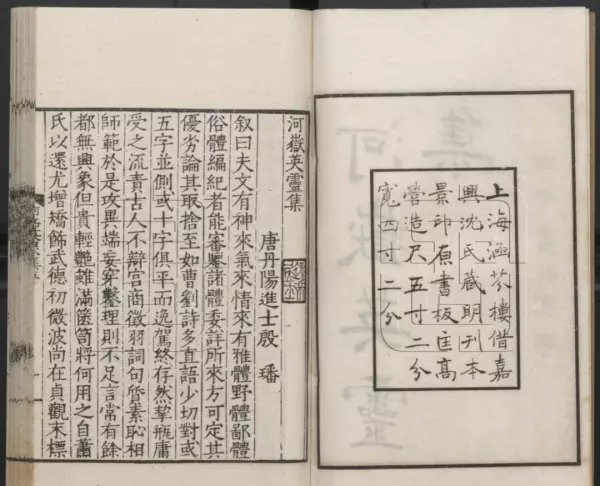 上海涵芬樓借嘉
興沈氏藏明刊本
景印原書板匡高
營造尺五寸二分
寬四寸二分
河嶽英靈集
唐丹陽進士殷 璠
叙曰夫文有神來氣來情來有雅體野體鄙體
俗體編紀者能審鑒諸體委詳所來方可定其
優劣論其取捨至如曹劉詩多直語少切對或
五字並側或十字俱平而逸駕終存然挈瓶庸
受之流責古人不辯宮商徵羽詞句質素恥相
師範於是攻異端妄穿鑿理則不足言常有餘
都無興象但貴輕艷雖滿篋笥將何用之自蕭
氏以還尤增矯飾武德初微波尚在貞觀末標